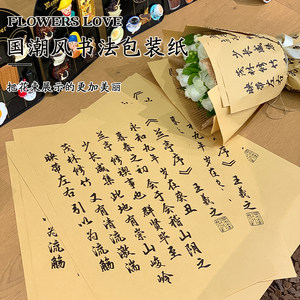 FLOWERS LOVE
国潮风书法包装纸
把花束展示的更加美丽
少长咸集
茂林修竹
映带左右
王羲之
《兰亭序》王羲之
永和九年岁在癸丑
暮春之初会于会稽山阴之
兰亭修禊事也群贤毕至
少长咸集此地有崇山峻岭
茂林修竹又有清流激湍
映带左右引以为流觞
为流觞